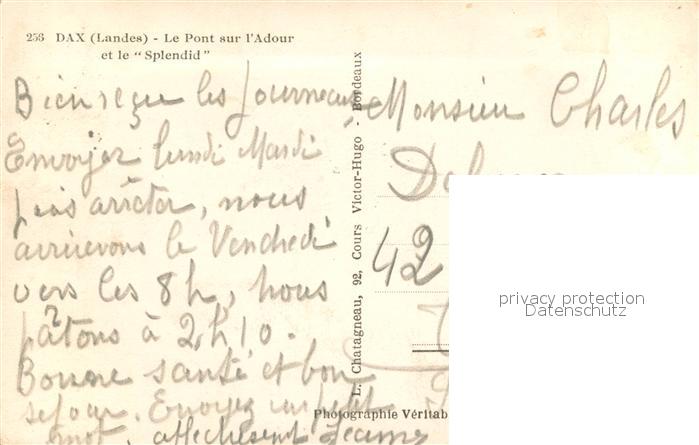 256 DAX (Landes) - Le Pont sur l'Adour
et le "Splendid"
Bien reçu les journeaux
Envoyez lundi Mardi
puis arrêter, nous
arriverons le Vendredi
vers les 8h, nous
à 2h10.
Bonne santé et bon
sejour. Envoyez un petit
mot, affectueusement
L. Chatagneau, 92, Cours Victor-Hugo - Bordeaux
Photographie Véritab
Monsieur Charles
42
privacy protection
Datenschutz